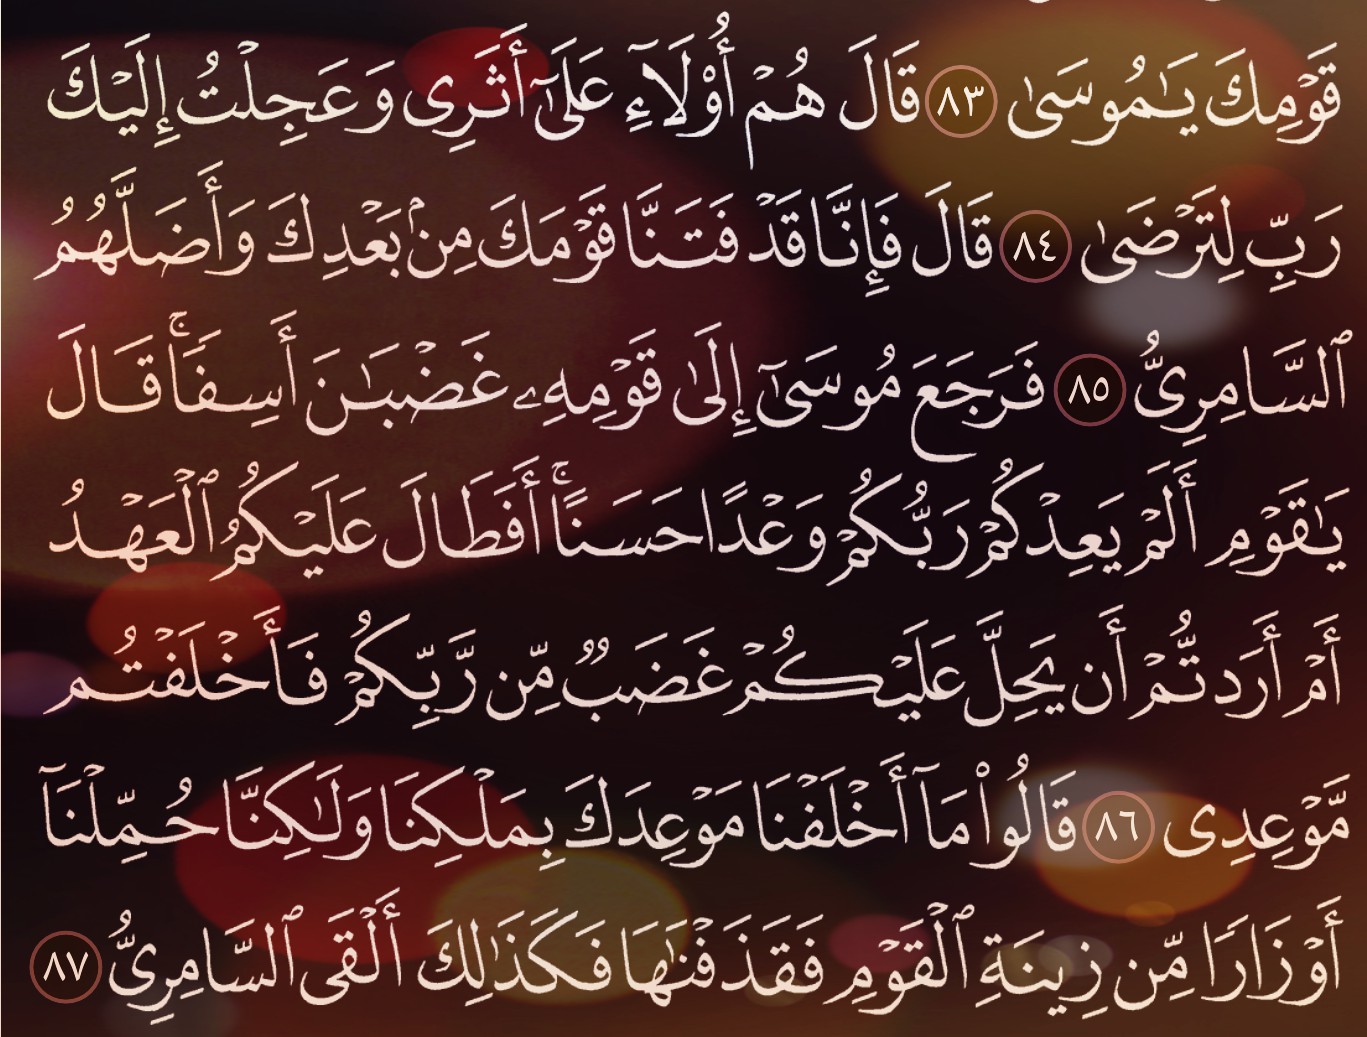 قَوْمِكَ يَٰمُوسَىٰ ٨٣ قَالَ هُمْ أُو۟لَآءِ عَلَىٰٓ أَثَرِى وَعَجِلْتُ إِلَيْكَ
رَبِّ لِتَرْضَىٰ ٨٤ قَالَ فَإِنَّا قَدْ فَتَنَّا قَوْمَكَ مِنۢ بَعْدِكَ وَأَضَلَّهُمُ
ٱلسَّامِرِىُّ ٨٥ فَرَجَعَ مُوسَىٰٓ إِلَىٰ قَوْمِهِۦ غَضْبَٰنَ أَسِفًاۚ قَالَ
يَٰقَوْمِ أَلَمْ يَعِدْكُمْ رَبُّكُمْ وَعْدًا حَسَنًاۚ أَفَطَالَ عَلَيْكُمُ ٱلْعَهْدُ
أَمْ أَرَدتُّمْ أَن يَحِلَّ عَلَيْكُمْ غَضَبٌ مِّن رَّبِّكُمْ فَأَخْلَفْتُم
مَّوْعِدِى ٨٦ قَالُوا۟ مَآ أَخْلَفْنَا مَوْعِدَكَ بِمَلْكِنَا وَلَٰكِنَّا حُمِّلْنَآ
أَوْزَارًا مِّن زِينَةِ ٱلْقَوْمِ فَقَذَفْنَٰهَا فَكَذَٰلِكَ أَلْقَى ٱلسَّامِرِىُّ ٨٧